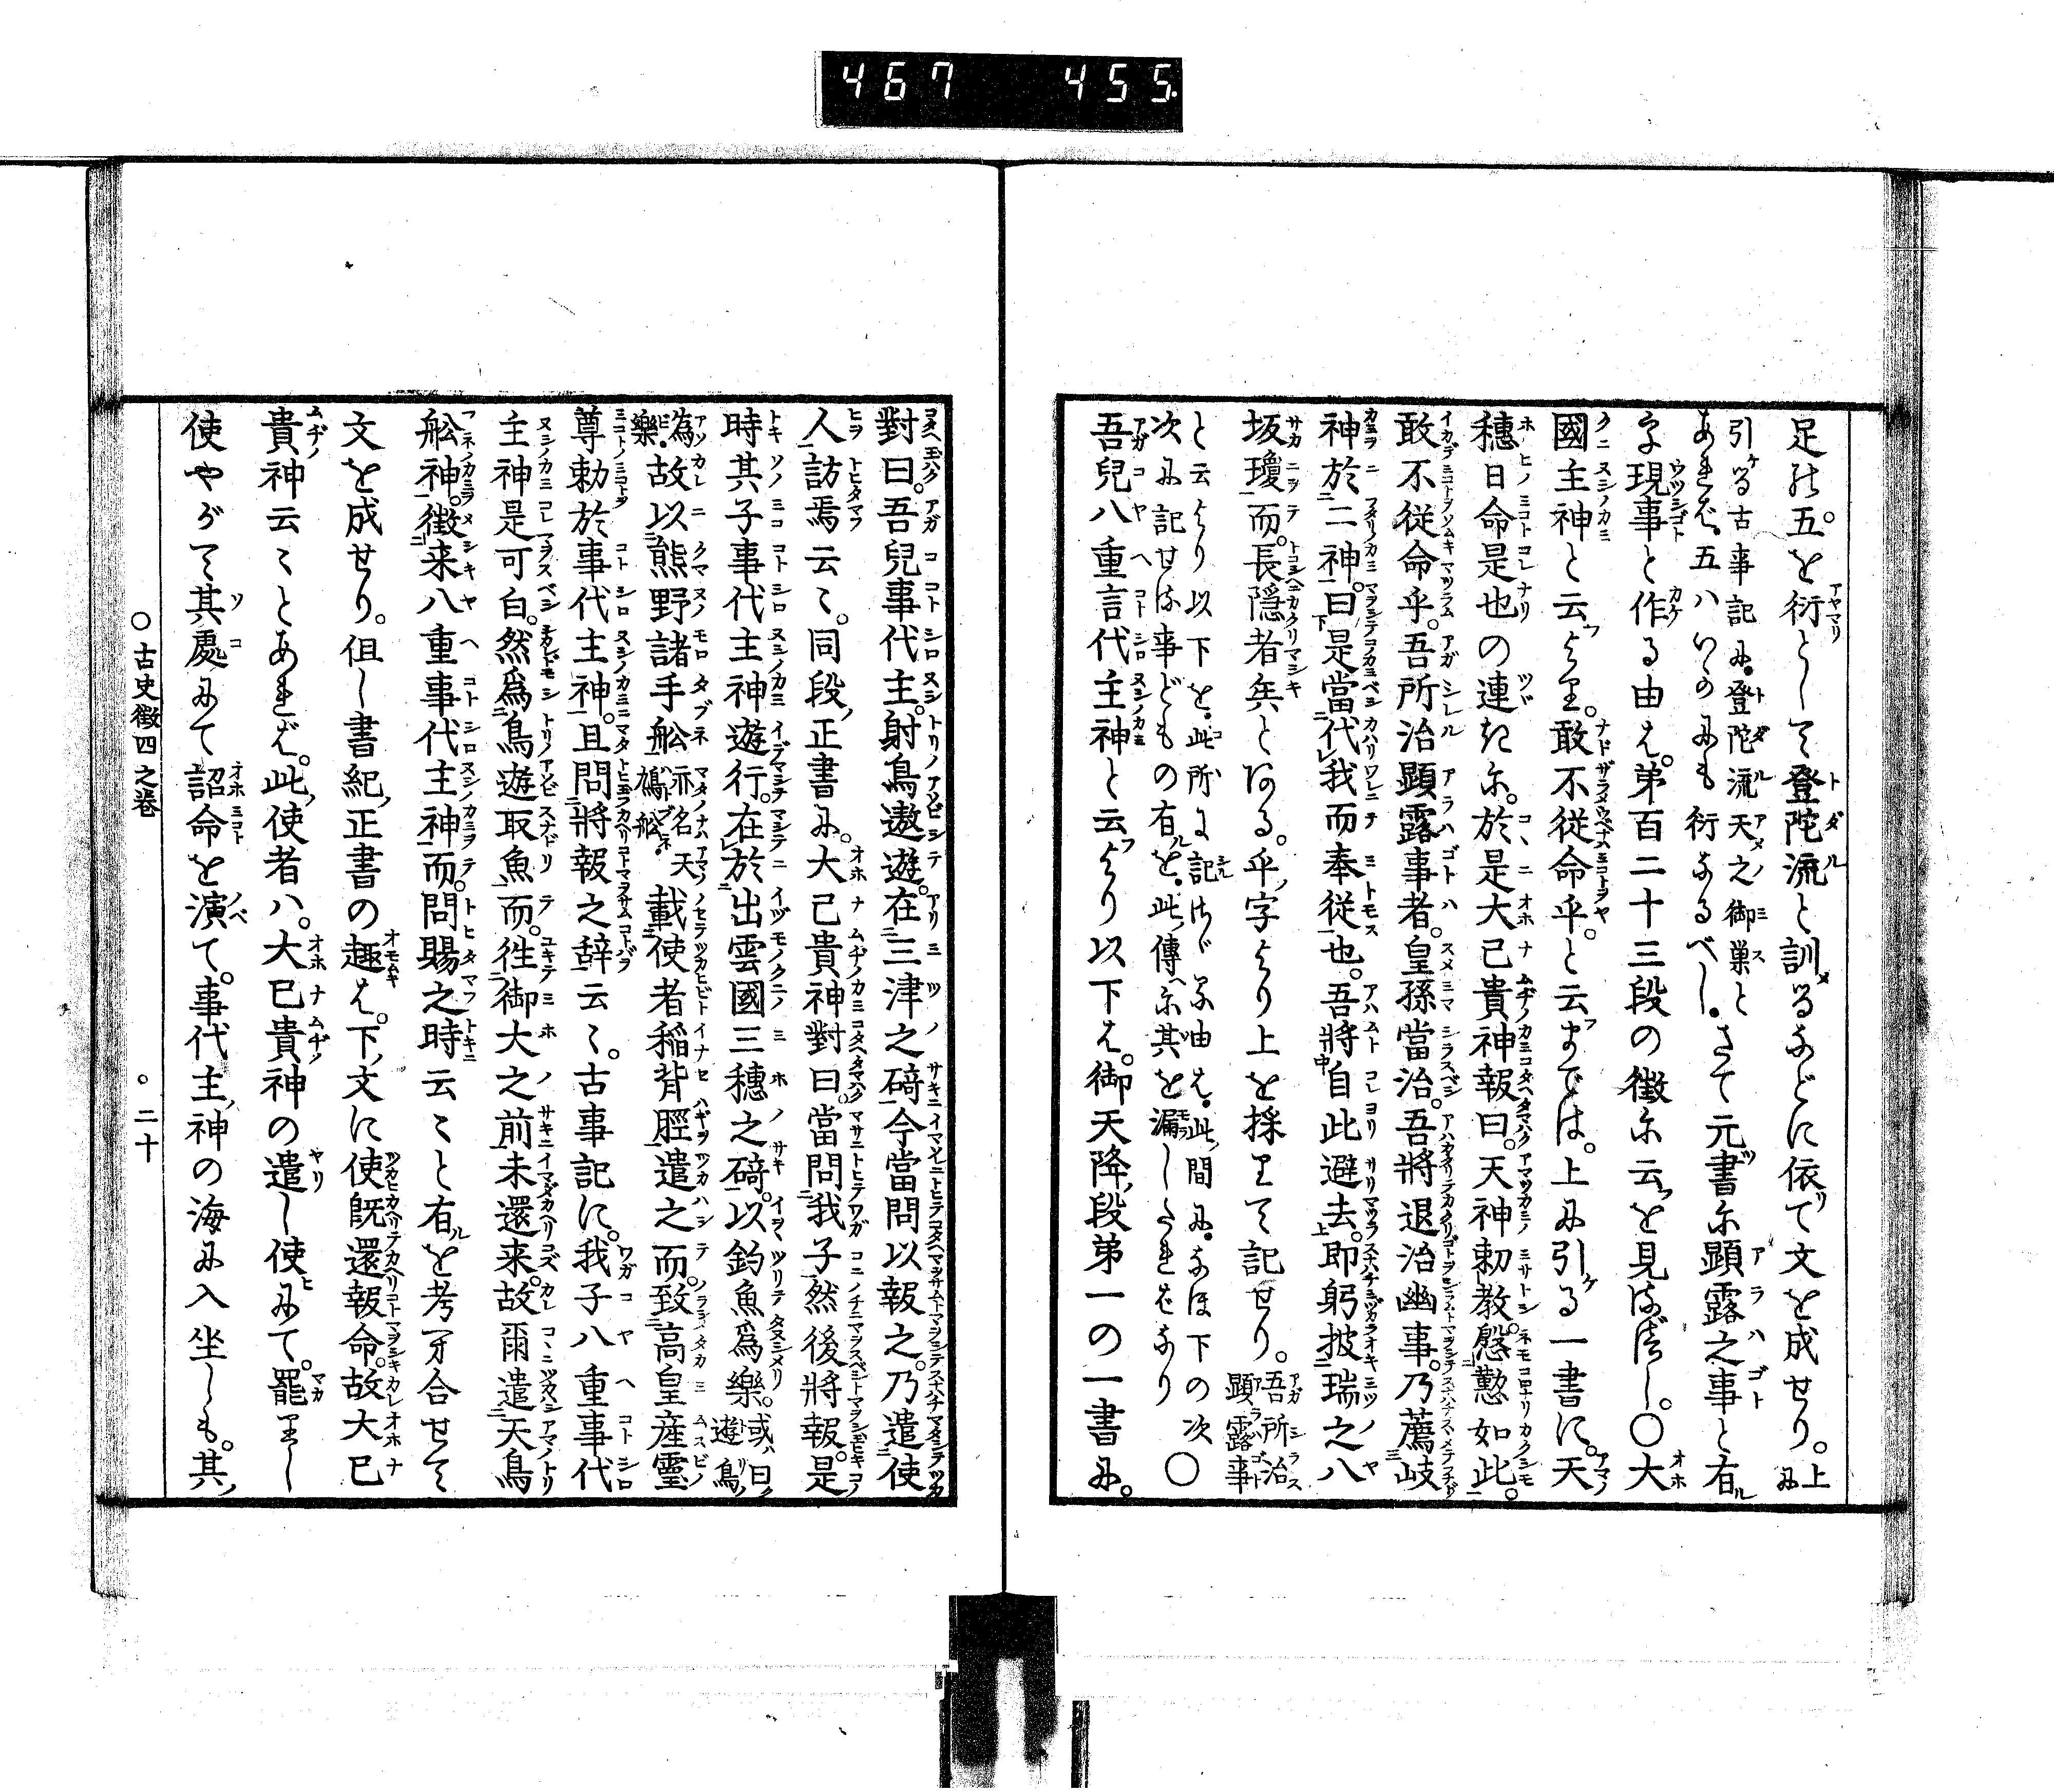 467 455
足る。五を衍として登陀流と訓るなどに依て文を成せり。上に
引る古事記に。登陀流天之御巣と
あれば、五ハいかにも衍なるべし。さて元書に顕露之事と有
字現事と作る由は。第百二十三段の徴に云を見るべし。〇大
國主神と云より。敢不従命乎。と云までは。上に引る一書に。天
穂日命是也の連きに。於是大己貴神報曰。天神勅教。慇懃如此。
敢不従命乎。吾所治顯露事者。皇孫當治。吾將退治幽事。乃薦岐
神於二神。曰是當代我而奉従也。吾將自此避去。即躬披瑞之八
坂瓊而。長隠者矣とある。乎字より上を採りて記せり。吾所治顕露事
と云より以下を。此所に記さゞる由は。此間に。なほ下の次
次に記せる事どもの有を。此傳に其を漏したればなり 〇
吾兒八重言代主神と云より以下は。御天降段第一の一書に。
對曰。吾兒事代主。射鳥遨遊。在三津之碕。今當問以報之。乃遣使
人訪焉云々。同段正書に。大己貴神對曰。當問我子。然後將報。是
時其子事代主神遊行。在於出雲國三穂之碕。以釣魚爲樂。或曰遊鳥
為樂。故以熊野諸手舩亦名天鴿舩。載使者稲背脛遣之而。致高皇産霊
尊勅於事代主神。且問將報之辞云々。古事記に。我子八重事代
主神是可白。然爲鳥遊取魚而。徃御大之前未還来。故爾遣天鳥
舩神。徴来八重事代主神而。問賜之時云々と有を考へ合せて
文を成せり。但し書紀正書の趣は。下文に使既還報命。故大己
貴神云々とあれば。此使者ハ。大己貴神の遣し使にて。罷りし
使やがて其處にて詔命を演て。事代主神の海に入坐しも。其
〇古史徴四之巻 〇二十